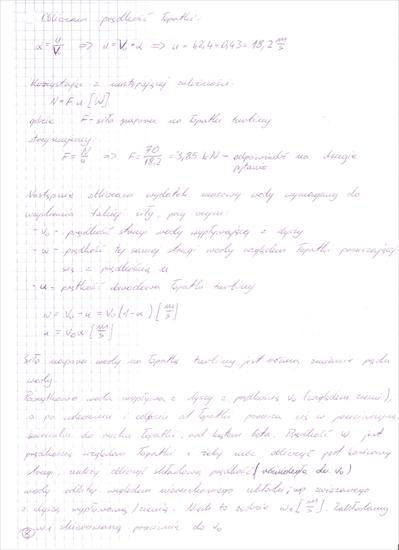 Obliczam prędkość łopatki:
α = u/V₀ => u = V₀·α => u = 42,4·0,43 = 18,2 m/s
Korzystając z następującej zależności:
N = F·u [W]
gdzie F - siła naporu na łopatki turbiny
otrzymujemy:
F = N/u => F = 70/18,2 = 3,85 kN - odpowiedź na drugie
pytanie
Następnie obliczam wydatek masowy wody wymagany do
wywołania takiej siły, przy czym:
- v₀ - prędkość strugi wody wypływającej z dyszy
- w - prędkość tej samej strugi wody względem łopatki poruszającej
się z prędkością u
- u - prędkość obwodowa łopatki turbiny
w = v₀ - u = v₀(1-α) [m/s]
u = v₀α [m/s]
Siła naporu wody na łopatkę turbiny jest równa zmianie pędu
wody.
Początkowo woda wypływa z dyszy z prędkością v₀ (względem ziemi),
a po uderzeniu i odbiciu od łopatki porusza się w przeciwnym
kierunku do ruchu łopatki, pod kątem beta. Prędkość w jest
prędkością względem łopatki i żeby móc obliczyć pęd końcowy
strugi, należy obliczyć składową prędkości (równoległą do v₀)
wody odbitej względem nieruchomego układu, np związanego
z dyszą wypływową/ziemią. Niech to będzie w₁ [m/s]. Zakładamy
w₁ skierowaną przeciwnie do v₀